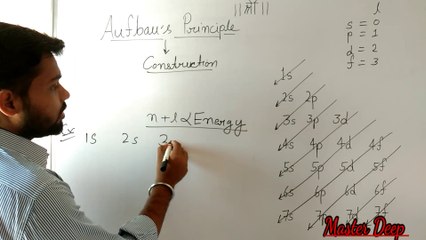 Aufbau's Principle
Construction
n+l α Energy
Ex 1s 2s 2
l
s = 0
p = 1
d = 2
f = 3
1s
2s 2p
3s 3p 3d
4s 4p 4d 4f
5s 5p 5d 5f
6s 6p 6d 6f
7s 7p 7d 7f
Master Deep